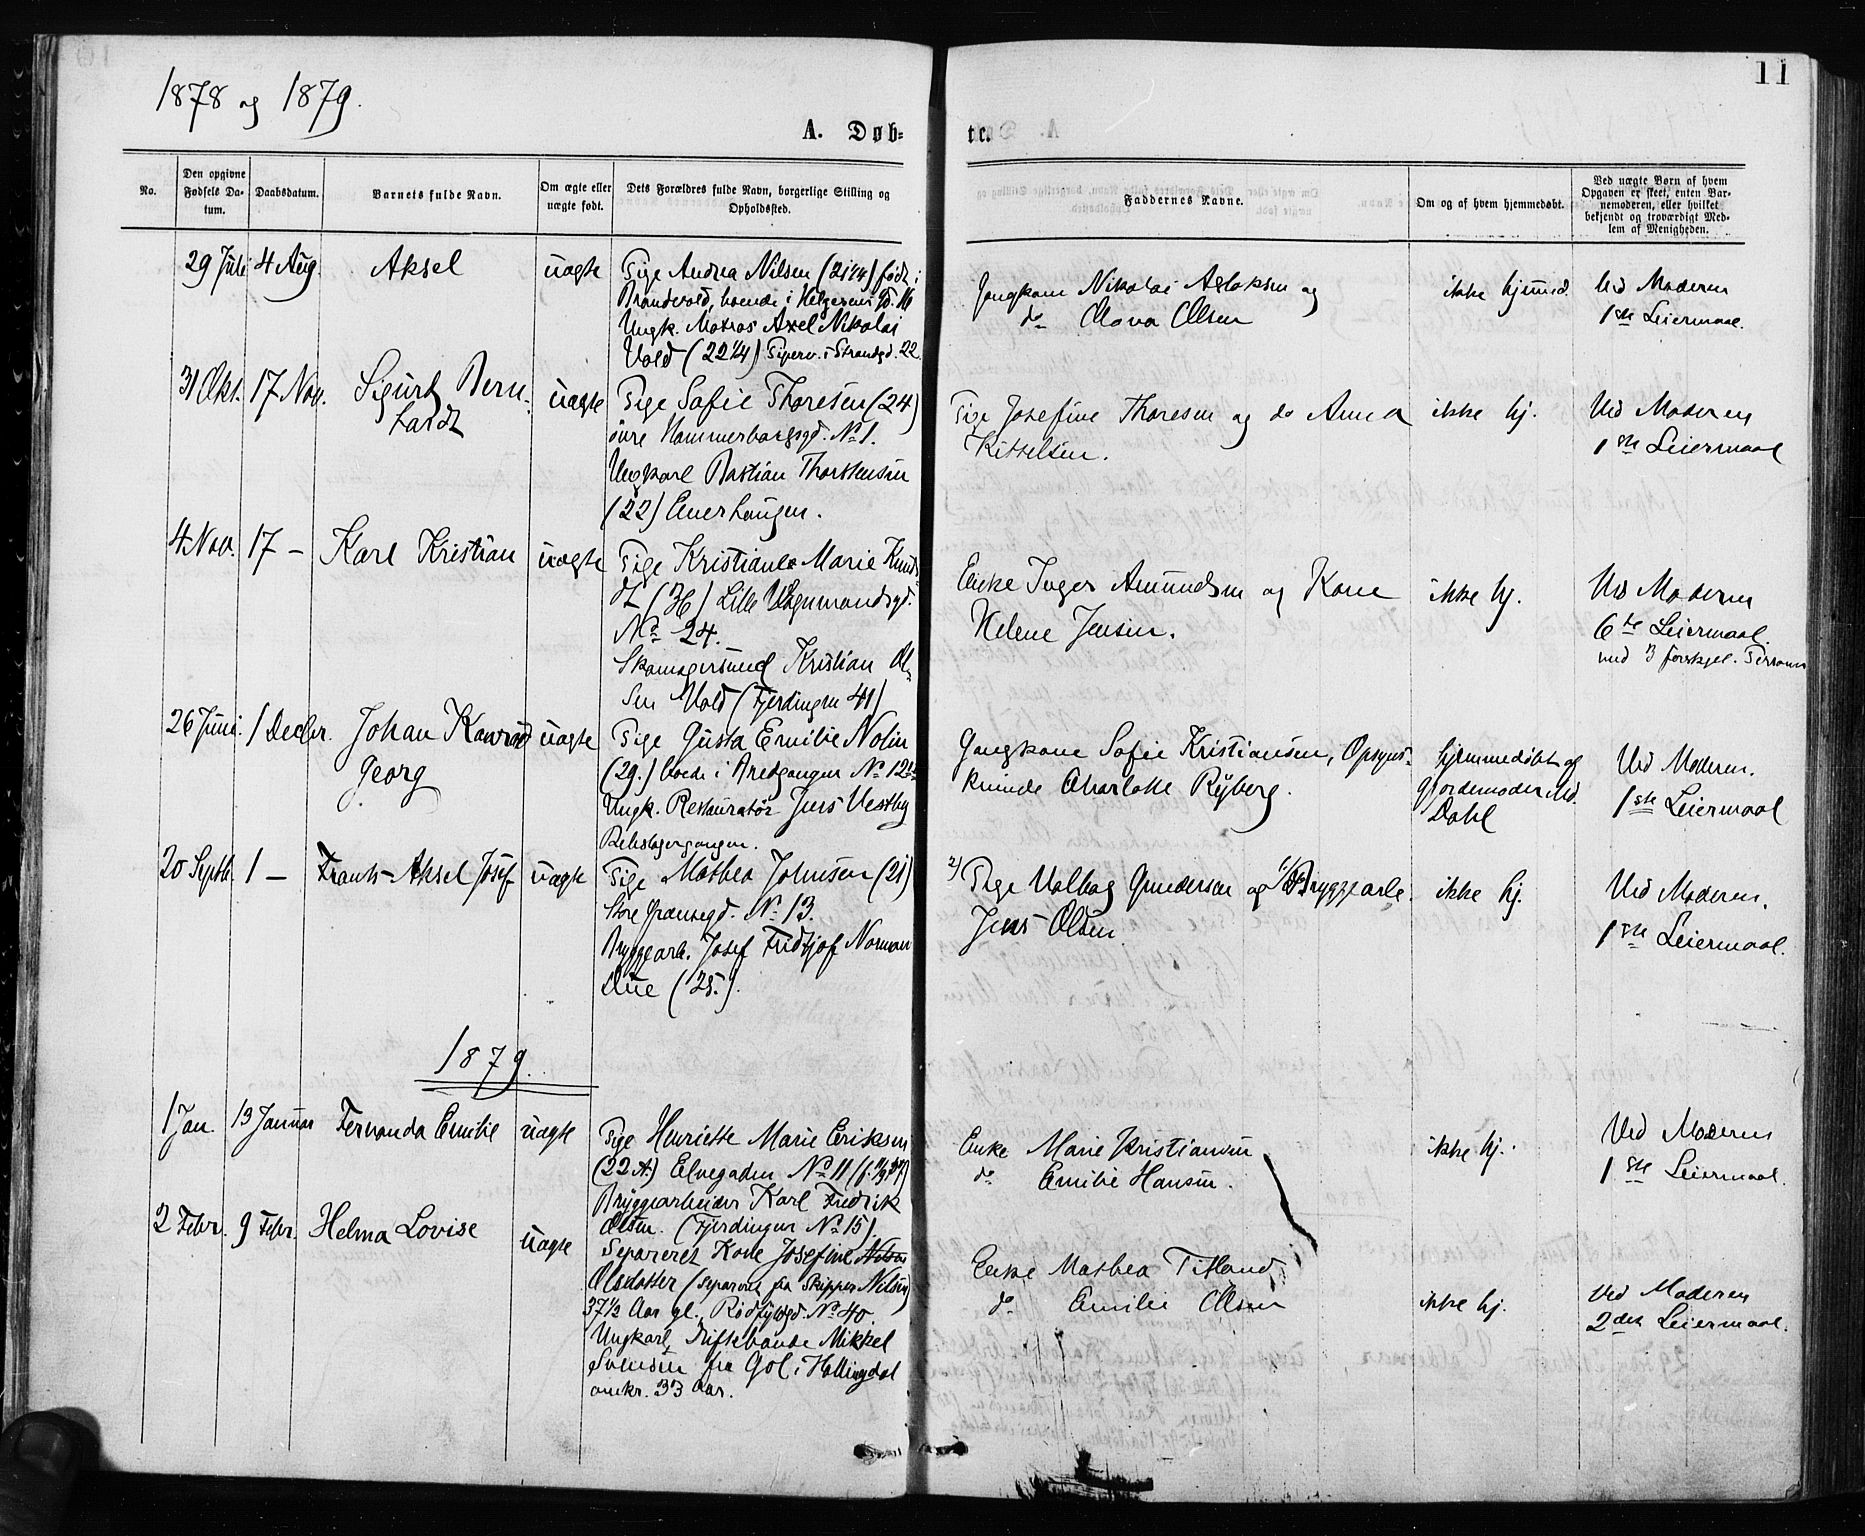 1878 og 1879.
11
A. Døb-
te.
No.
Den opgivne Fødsels Da-
tum.
Daabsdatum.
Barnets fulde Navn.
Om ægte eller
uægte født.
Dets Forældres fulde Navn, borgerlige Stilling og
Opholdssted.
Faddernes Navne.
Om og af hvem hjemmedøbt.
Ved uægte Børn af hvem
Opgaven er skeet, enten Bar-
nemoderen, eller hvilket
bekjendt og troværdigt Med-
lem af Menigheden.
29 Juli 4 Aug. Aksel uægte
Pige Andrea Nilsen (21 1/4) født i
Brandvold, boende i Helgesens Gd.
Ungk. Matros Axel Nikolai
Vold (22 1/4) Piperv. i Strandgd. 22.
Gangkone Nikolai Aslaksen og
do Olava Olsen
ikke hjemmed.
Ved Moderen
1ste Leiermaal.
31 Okt. 17 Nov. Sigurd Bern-
hardt
uægte
Pige Sofie Thoresen (24)
øvre Hammerborggd. No 1.
Ungkarl Bastian Thorstensen
(22) Enerhaugen.
Pige Josefine Thoresen og do Anna
Kittelsen.
ikke hj.
Ved Moderen
1ste Leiermaal
4 Nov. 17 – Karl Kristian uægte
Pige Kristiane Marie Knud-
dt (36) Lille Vognmandsgd.
No 24.
Skomagersvend Kristian Ol-
sen Vold (Fjerdingen 41)
Enke Inger Amundsen og Kone
Helene Jensen.
ikke hj.
Ved Moderen
6te Leiermaal.
med 3 forskjel. Personer
26 Juni 1 Decbr. Johan Konrad
Georg
uægte
Pige Gusta Emilie Nolin
(29.) boede i Bredgangen No 12
Ungk. Restauratør Jens Vestby
Rebslagergangen.
Gangkone Sofie Kristiansen, Opsyns-
kvinde Charlotte Ryberg.
hjemmedøbt af
Gjordemoder Md.
Dahl
Ved Moderen.
1ste Leiermaal
20 Septb. 1 – Frants Aksel Josef uægte
Pige Mathea Johnsen (21)
Store Grænsegd. No 13.
Bryggearb. Josef Fridtjof Norman
Due (25.)
2) Pige Valbog Gundersen og 1) Bryggearb.
Jens Olsen.
ikke hj.
Ved Moderen.
1ste Leiermaal.
1879.
1 Jan. 13 Januar Fernanda Emilie uægte
Pige Henriette Marie Eriksen
(22 A.) Elvegaden No 11
Bryggearbeider Karl Fredrik
Olsen. (Fjerdingen No 15)
Enke Marie Kristiansen
do Emilie Hansen.
ikke hj.
Ved Moderen
1ste Leiermaal.
2 Febr. 9 Febr. Helma Lovise uægte
Separeret Kone Josefine Nilsen
Olsdatter (separeret fra Skipper Nilsen)
37 1/2 Aar gl., Rødfyldgd. No 40.
Ungkarl, Driftebonde Mikkel
Svensen fra Gol i Hallingdal
omkr. 33 Aar.
Enke Mathea Titland
do Emilie Olsen
ikke hj.
Ved Moderen
2det Leiermaal.